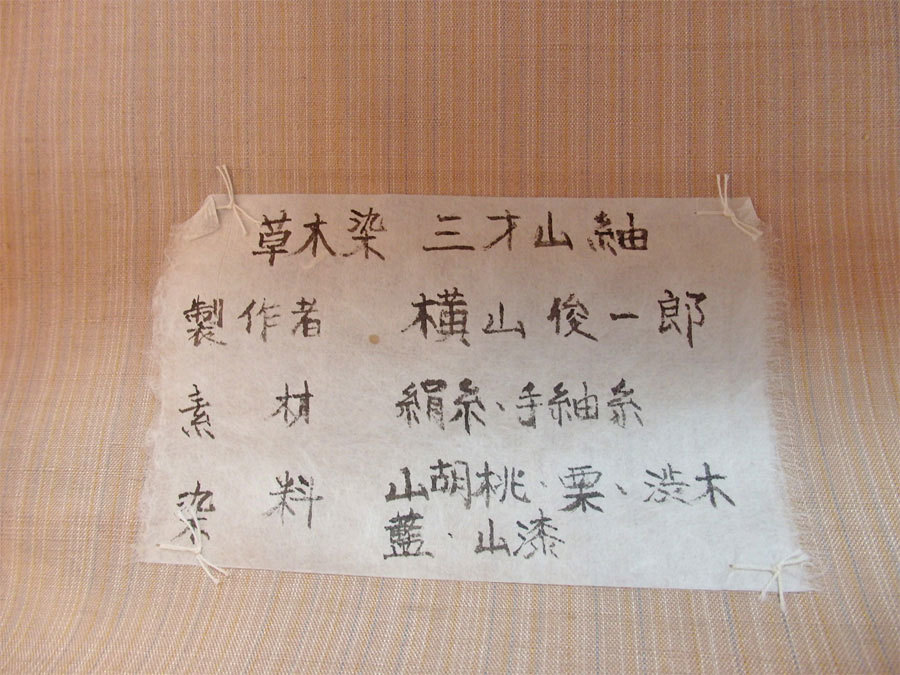 草木染 三才山紬
製作者 横山俊一郎
素材 絹糸、手紬糸
染料 山胡桃、栗、渋木
藍、山漆